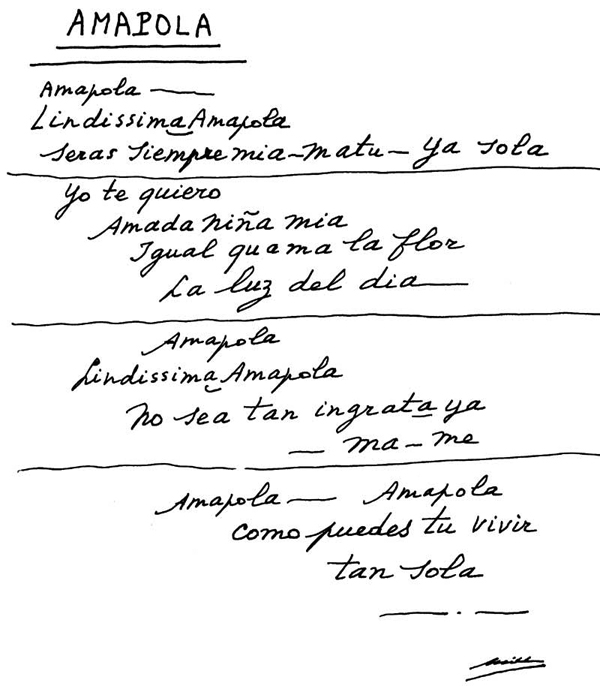 AMAPOLA
Amapola —
Lindissima Amapola
Seras Siempre mia - matu - ya sola
Yo te quiero
Amada Niña mia
Igual quama la flor
La luz del dia —
Amapola
Lindissima Amapola
No sea tan ingrata ya
— ma - me
Amapola — Amapola
Como puedes tu vivir
tan sola
— . —